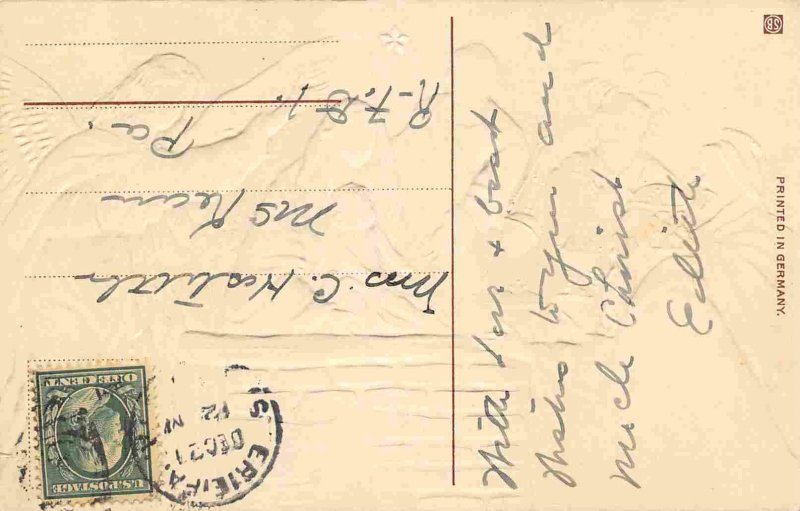 With love & best
wishes to you and
uncle Christ
Edith
Mrs. C.
McKean
Pa.
R.F.D. 1.
PRINTED IN GERMANY.
SB
ERIE, PA.
DEC 21
12
U.S. POSTAGE
ONE CENT